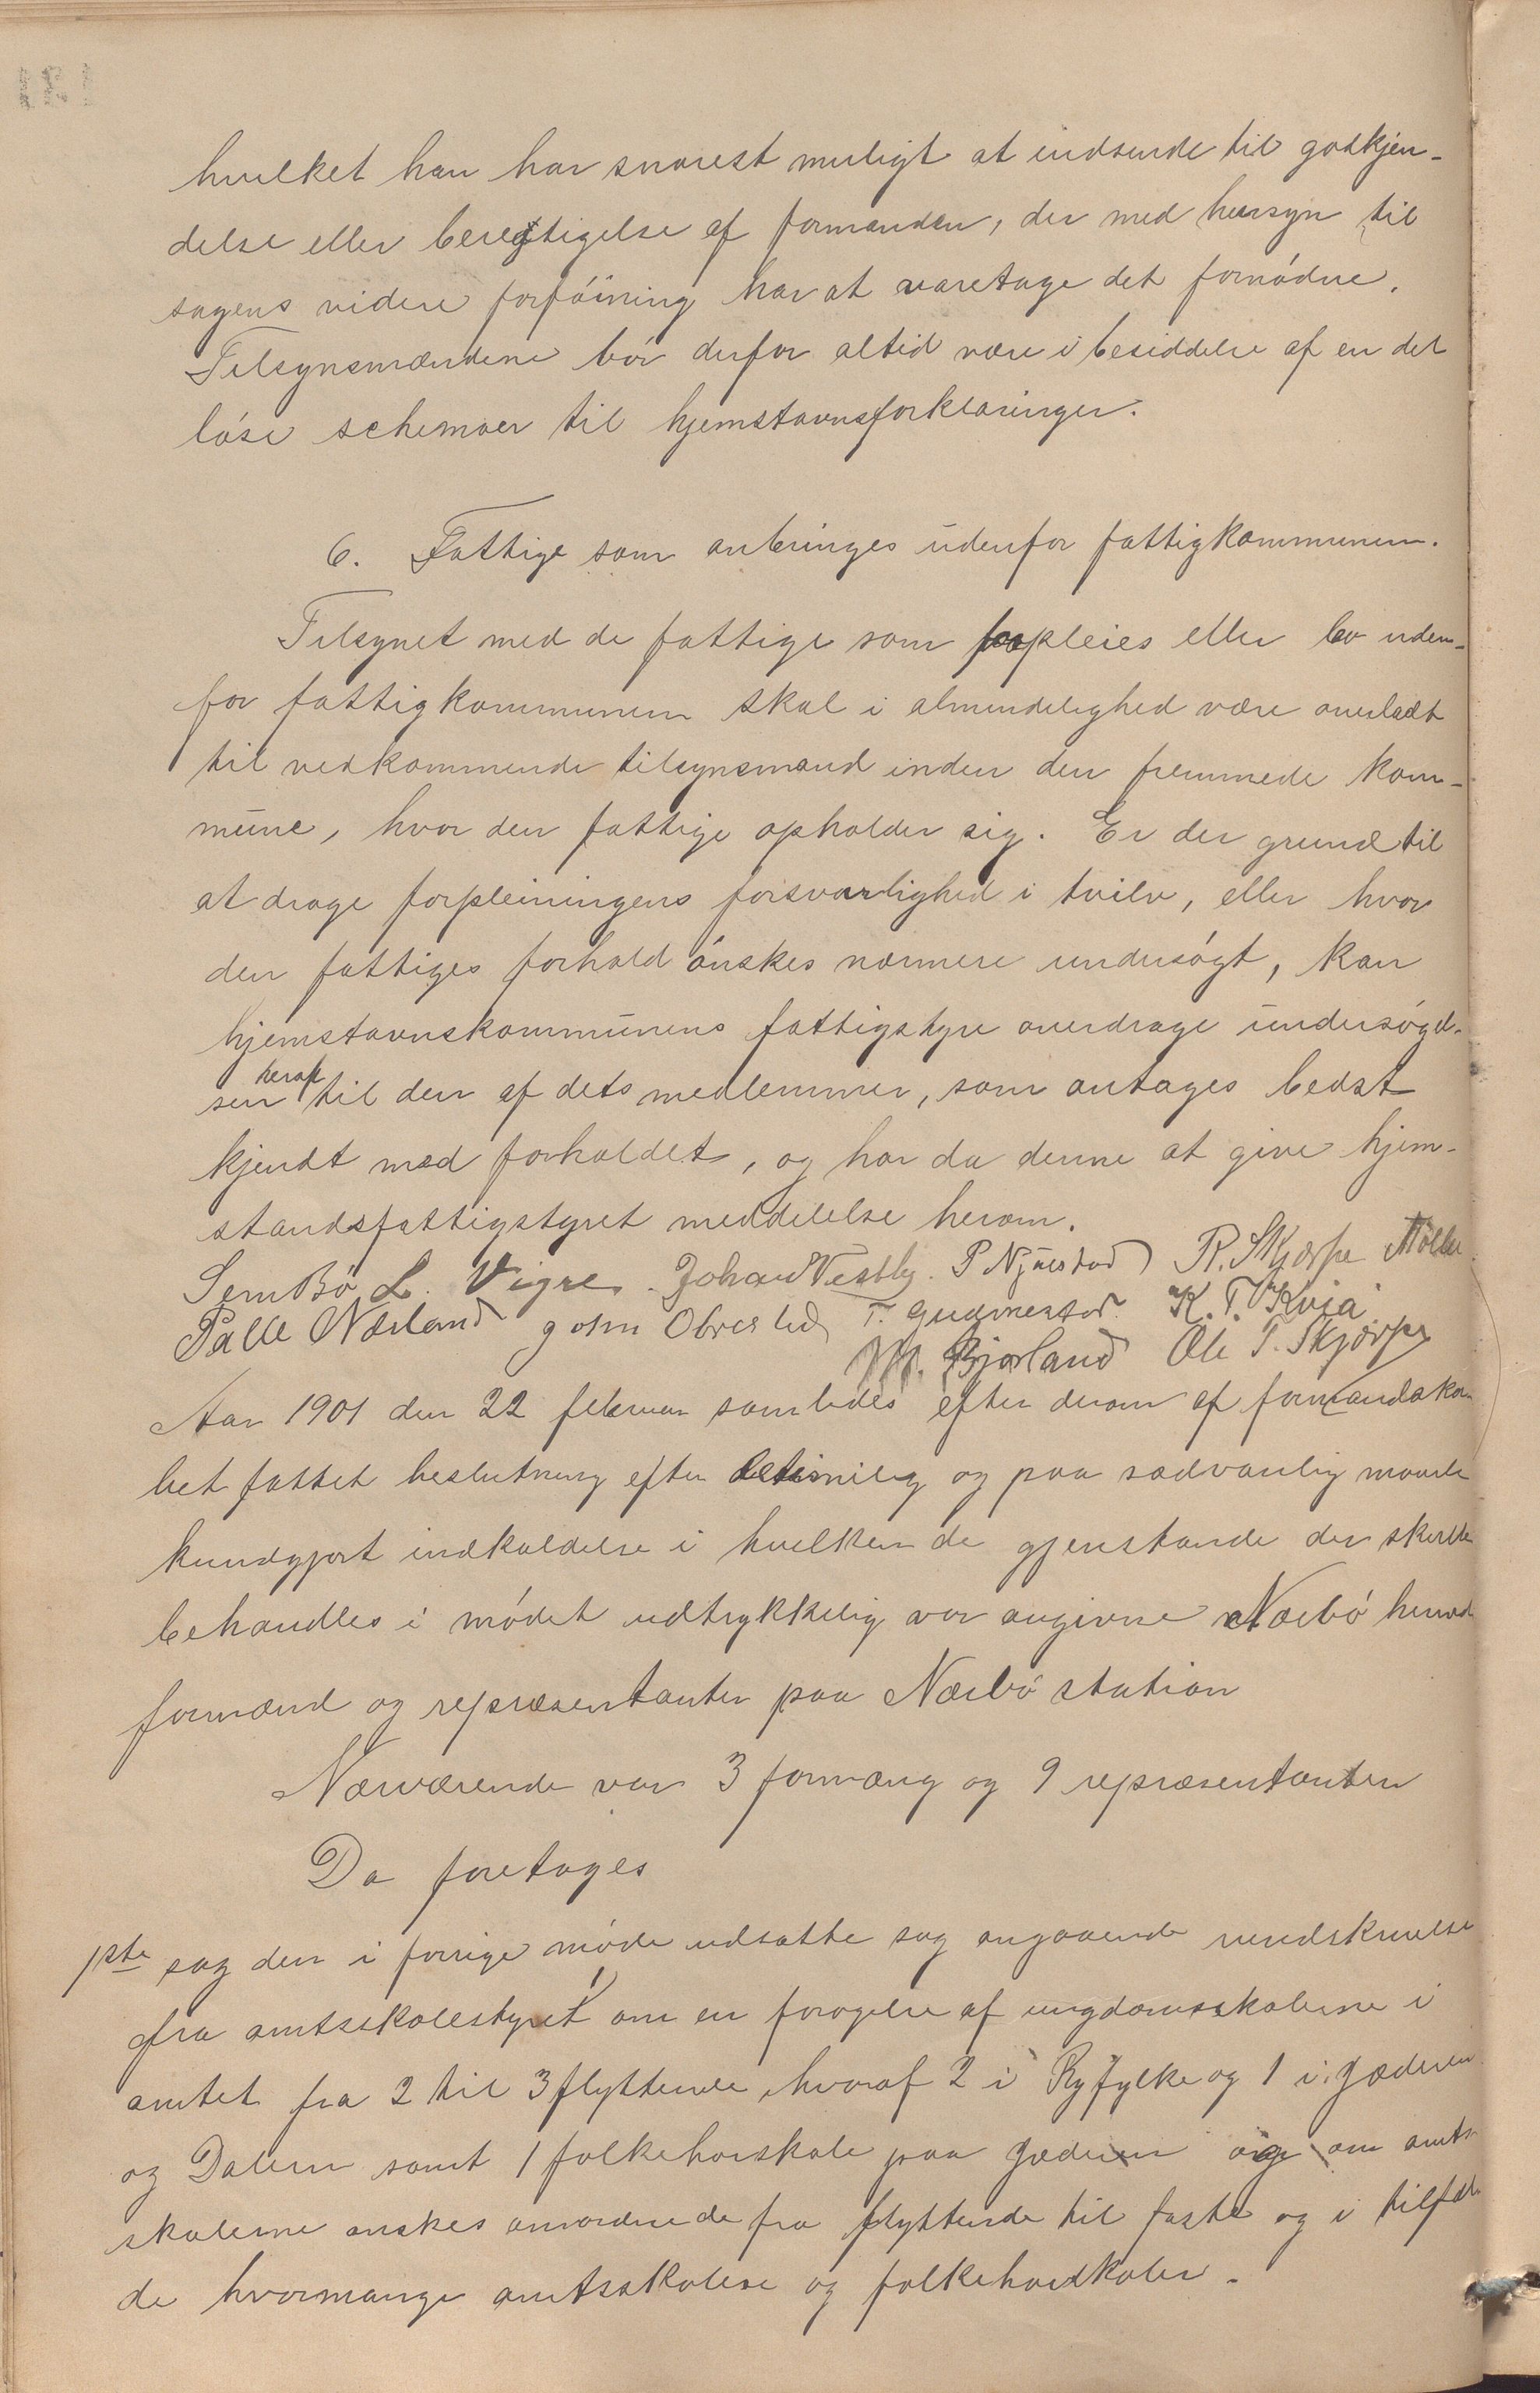 hvilket han har snarest muligt at indsende til godkjen-
delse eller beregtigelse af formanden, der med hensyn til
sagens videre forføining har at varetage det fornødne.
Tilsynsmændene bør derfor altid være i besiddelse af en del
løse schemaer til hjemstavnsforklaringer.
6. Fattige som anbringes udenfor fattigkommunen.
Tilsynet med de fattige som forpleies eller bor uden-
for fattigkommunen skal i almindelighed være overladt
til vedkommende tilsynsmand inden den fremmede kom-
mune, hvor den fattige opholder sig. Er der grund til
at drage forpleiningens forsvarlighed i tvilv, eller hvor
den fattiges forhold ønskes nærmere undersøgt, kan
hjemstavnskommunens fattigstyre overdrage undersøgel-
sen heraf til den af dets medlemmer, som antages bedst
kjendt med forholdet, og har da denne at give hjem-
standsfattigstyret meddelelse herom.
Sem Bø L. Vigre Johan Vestly. P Njærstad R. Skjærpe Møller
Palle Nærland John Obrestad T. Gudmestad K. T. Kvia
M. Bjorland Ole T. Skjærpe
Aar 1901 den 22 februar samledes efter derom af formandska-
bet fattet beslutning efter betimilig og paa sædvanlig maade
kundgjort indkaldelse i hvilken de gjenstande der skulde
behandles i mødet udtrykkelig var angivne Nærbø herreds
formænd og repræsentanter paa Nærbø station
Nærværende var 3 formænd og 9 repræsentanter
Da foretages
1ste sag den i forrige møde udsatte sag angaaende rundskrivelse
fra amtsskolestyret om en forøgelse af ungdomsskolerne i
amtet fra 2 til 3 flyttende hvoraf 2 i Ryfylke og 1 i Jæderen
og Dalerne samt 1 folkehøiskole paa Jæderen og om amts
skolerne ønskes omordnede fra flyttende til faste og i tilfæl
de hvormange amtsskolere og folkehøiskoler.